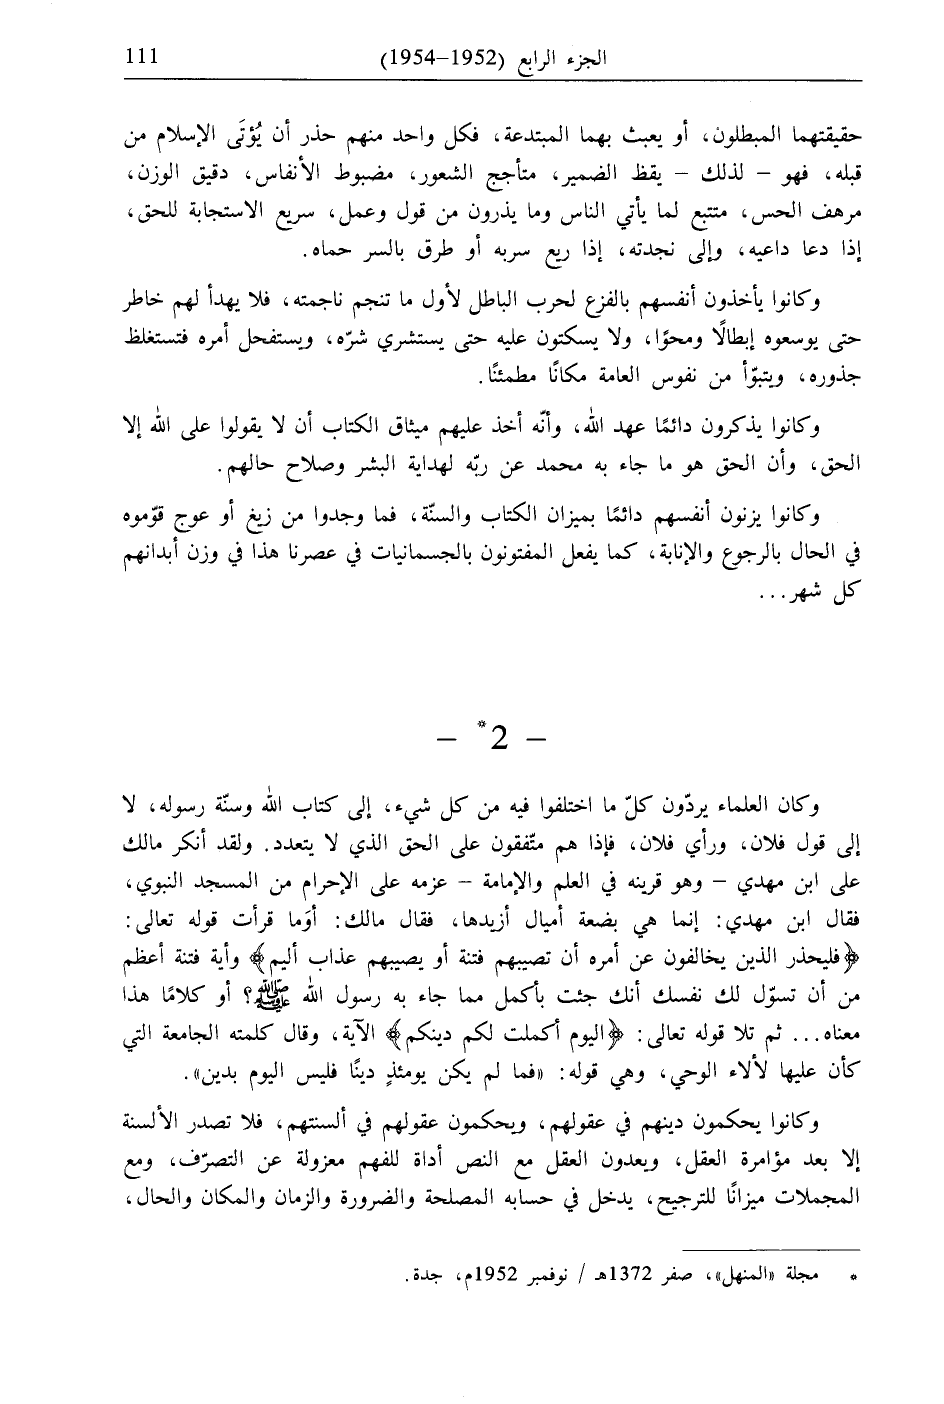 الجزء الرابع (1952–1954) 111
حقيقتهما المبطلون، أو يعبث بهما المبتدعة، فكل واحد منهم حذر أن يُؤتَى الإسلام من
قبله، فهو – لذلك – يقظ الضمير، متأجج الشعور، مضبوط الأنفاس، دقيق الوزن،
مرهف الحس، متتبع لما يأتي الناس وما يذرون من قول وعمل، سريع الاستجابة للحق،
إذا دعا داعيه، وإلى نجدته، إذا ريع سربه أو طرق بالسر حماه.
وكانوا يأخذون أنفسهم بالفزع لحرب الباطل لأول ما تنجم ناجمته، فلا يهدأ لهم خاطر
حتى يوسعوه إبطالًا ومحوًا، ولا يسكتون عليه حتى يستشري شرّه، ويستفحل أمره فتستغلظ
جذوره، ويتبوّأ من نفوس العامة مكانًا مطمئنًا.
وكانوا يذكرون دائمًا عهد الله، وأنّه أخذ عليهم ميثاق الكتاب أن لا يقولوا على الله إلا
الحق، وأن الحق هو ما جاء به محمد عن ربّه لهداية البشر وصلاح حالهم.
وكانوا يزنون أنفسهم دائمًا بميزان الكتاب والسنّة، فما وجدوا من زيغ أو عوج قوّموه
في الحال بالرجوع والإنابة، كما يفعل المفتونون بالجسمانيات في عصرنا هذا في وزن أبدانهم
كل شهر...
– 2* –
وكان العلماء يردّون كلّ ما اختلفوا فيه من كل شيء، إلى كتاب الله وسنّة رسوله، لا
إلى قول فلان، ورأي فلان، فإذا هم متّفقون على الحق الذي لا يتعدد. ولقد أنكر مالك
على ابن مهدي – وهو قرينه في العلم والإمامة – عزمه على الإحرام من المسجد النبوي،
فقال ابن مهدي: إنما هي بضعة أميال أزيدها، فقال مالك: أوَما قرأت قوله تعالى:
﴿فليحذر الذين يخالفون عن أمره أن تصيبهم فتنة أو يصيبهم عذاب أليم﴾ وأية فتنة أعظم
من أن تسوّل لك نفسك أنك جئت بأكمل مما جاء به رسول الله ﷺ؟ أو كلامًا هذا
معناه... ثم تلا قوله تعالى: ﴿اليوم أكملت لكم دينكم﴾ الآية، وقال كلمته الجامعة التي
كأن عليها لألاء الوحي، وهي قوله: «فما لم يكن يومئذٍ دينًا فليس اليوم بدين».
وكانوا يحكمون دينهم في عقولهم، ويحكمون عقولهم في ألسنتهم، فلا تصدر الألسنة
إلا بعد مؤامرة العقل، ويعدون العقل مع النص أداة للفهم معزولة عن التصرّف، ومع
المجملات ميزانًا للترجيح، يدخل في حسابه المصلحة والضرورة والزمان والمكان والحال،
* مجلة «المنهل»، صفر 1372هـ / نوفمبر 1952م، جدة.